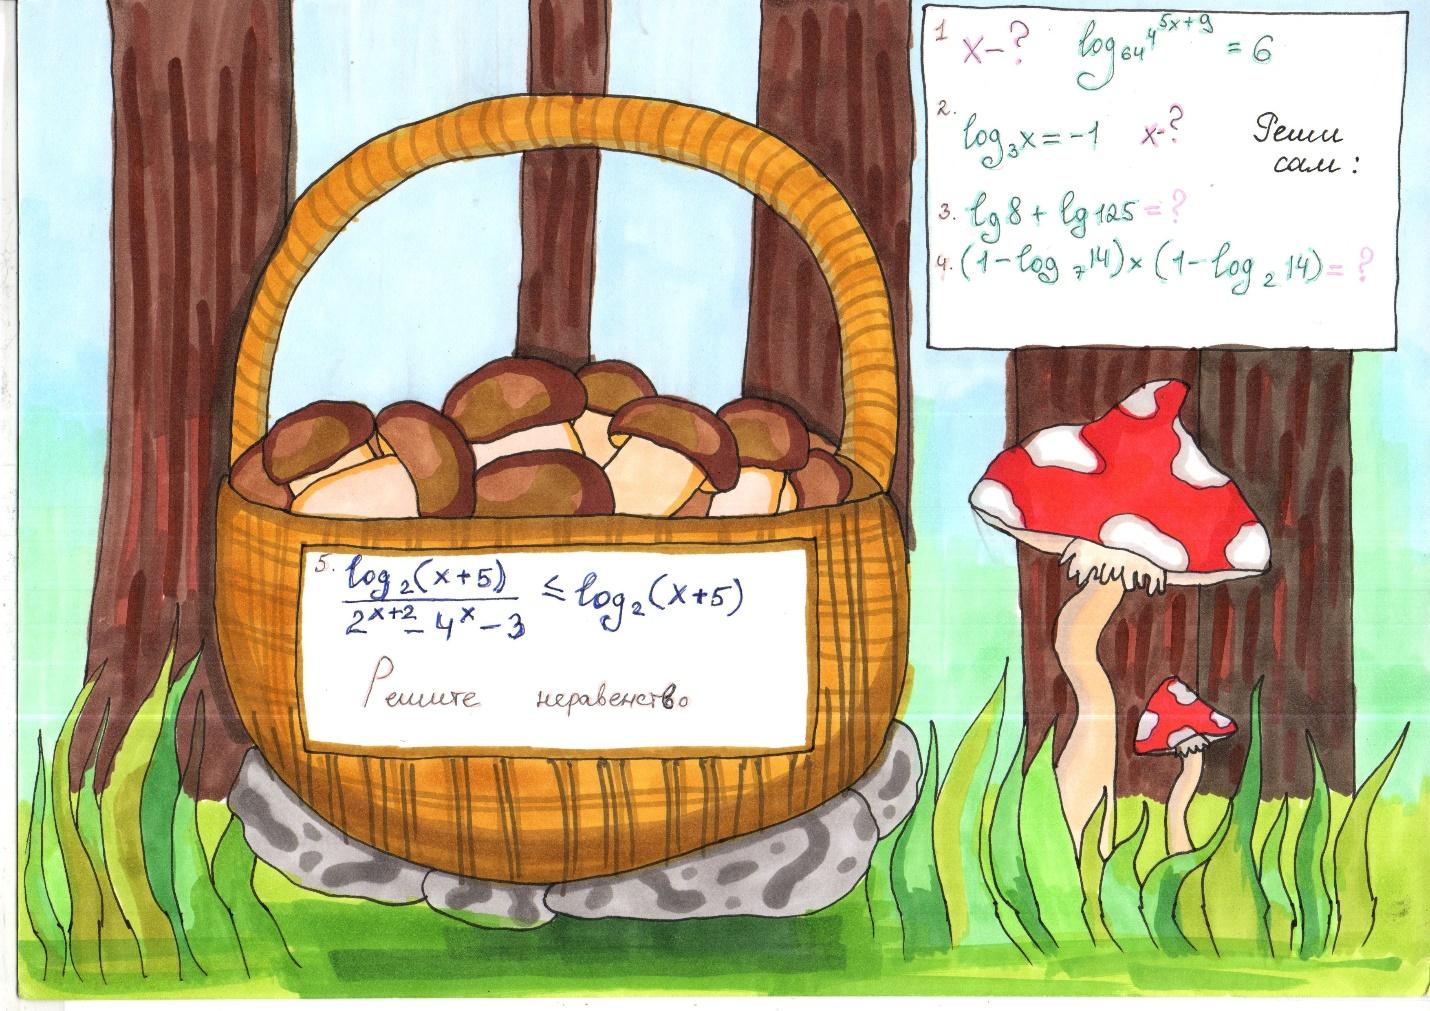 1 x-? log₆₄4⁵ˣ⁺⁹ = 6
2. log₃x = -1 x-? Реши
сам:
3. lg8 + lg125 = ?
4. (1-log₇14)×(1-log₂14) = ?
5. log₂(x+5)/(2ˣ⁺² - 4ˣ - 3) ≤ log₂(x+5)
Решите неравенство